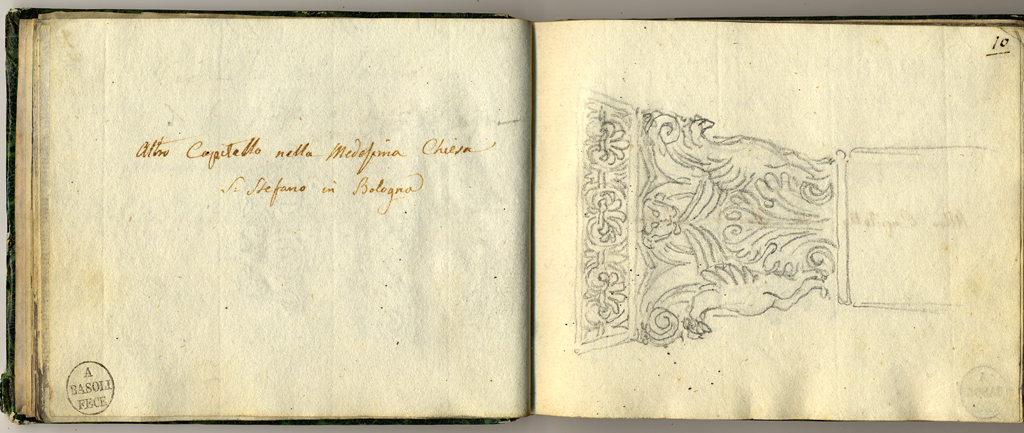 Altro Capitello nella Medesima Chiesa
S. Stefano in Bologna
A
BASOLI
FECE
10